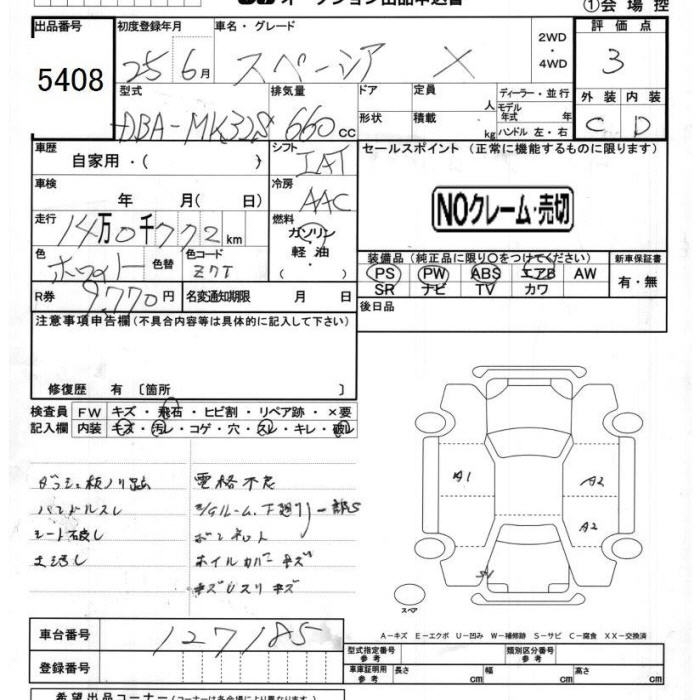 オークション出品申込書
①会場控
出品番号 初度登録年月 車名・グレード 2WD・4WD 評価点
5408 25 6月 スペーシア X 3
型式 排気量 ドア 定員 人 ディーラー・並行 外装 内装
DBA-MK32S 660 cc 形状 積載 kg モデル年式 年 C D
ハンドル 左・右
車歴 自家用・( ) シフト IAT セールスポイント (正常に機能するものに限ります)
車検 年 月( 日) 冷房 AAC
NOクレーム・売切
走行 14万0千772km 燃料 ガソリン 軽油
色 ホワイト 色替 色コード Z7T
装備品 (純正品に限り○をつけてください) 新車保証書
PS PW ABS エアB AW 有・無
SR ナビ TV カワ
R券 9,770円 名変通知期限 月 日 後日品
注意事項申告欄 (不具合内容等は具体的に記入して下さい)
修復歴 有 〔箇所 〕
検査員 FW キズ・飛石・ヒビ割・リペア跡・×要
記入欄 内装 キズ・汚レ・コゲ・穴・スレ・キレ・破レ
ダッシュ板ノリ跡 電格不良
ハンドルスレ
シート破レ
ホイルカバーキズ
キズUスリキズ
A1 A2
A2
スペア
A－キズ E－エクボ U－凹み W－補修跡 S－サビ C－腐食 XX－交換済
車台番号 127185 型式指定番号 参考 類別区分番号 参考
登録番号 車庫証明用 参考 長さ cm 幅 cm 高さ cm
希望出品コーナー